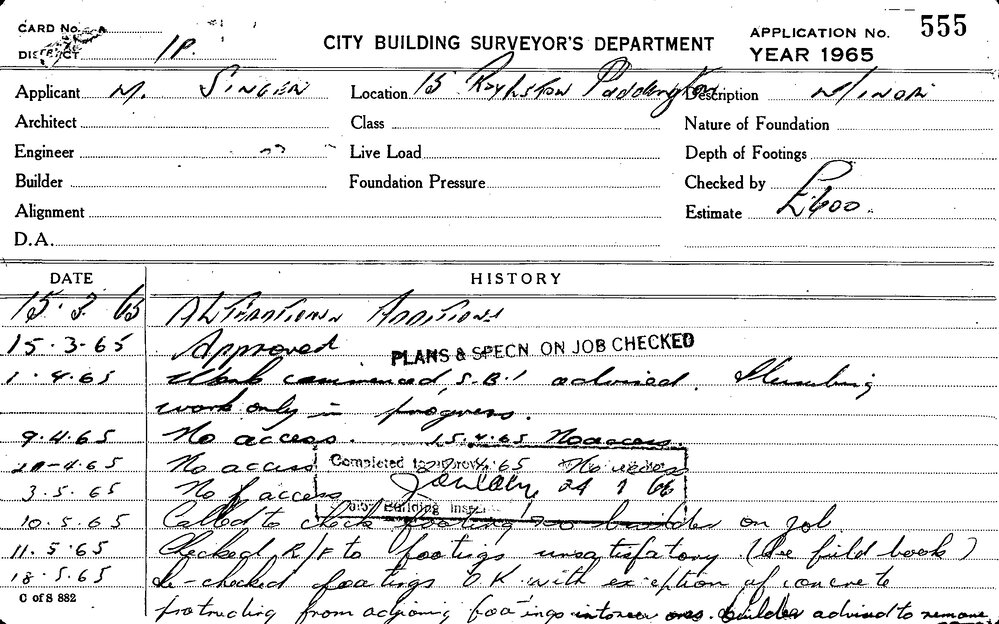 CARD No.
DISTRICT 1P.
CITY BUILDING SURVEYOR'S DEPARTMENT
APPLICATION No. 555
YEAR 1965
Applicant M. SINGER Location 15 Paddington Description MINOR
Architect Class Nature of Foundation
Engineer Live Load Depth of Footings
Builder Foundation Pressure Checked by
Alignment Estimate £600.
D.A.
DATE HISTORY
15.3.65 ALTERATIONS ADDITIONS
15.3.65 Approved PLANS & SPECN. ON JOB CHECKED
1.4.65 Work commenced, S.B.I advised. Plumbing
work only in progress.
9.4.65 No access. 15.4.65 No access.
20-4.65 No access 4.65 No access
Completed
3.5.65 No access 24 1 66
Building
10.5.65 Called to check footing no builder on job
11.5.65 Checked R/F to footigs unsatisfatory (See field book)
18.5.65 Re-checked footings O.K with exception of concrete
C of S 882
protruding from adjoining footings into new ones. Builder advised to remove